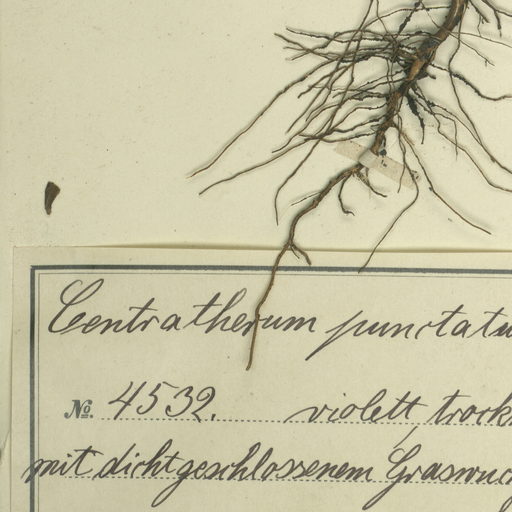 Centratherum punctatu
No. 4532. violett, trock
mit dichtgeschlossenem Graswuc